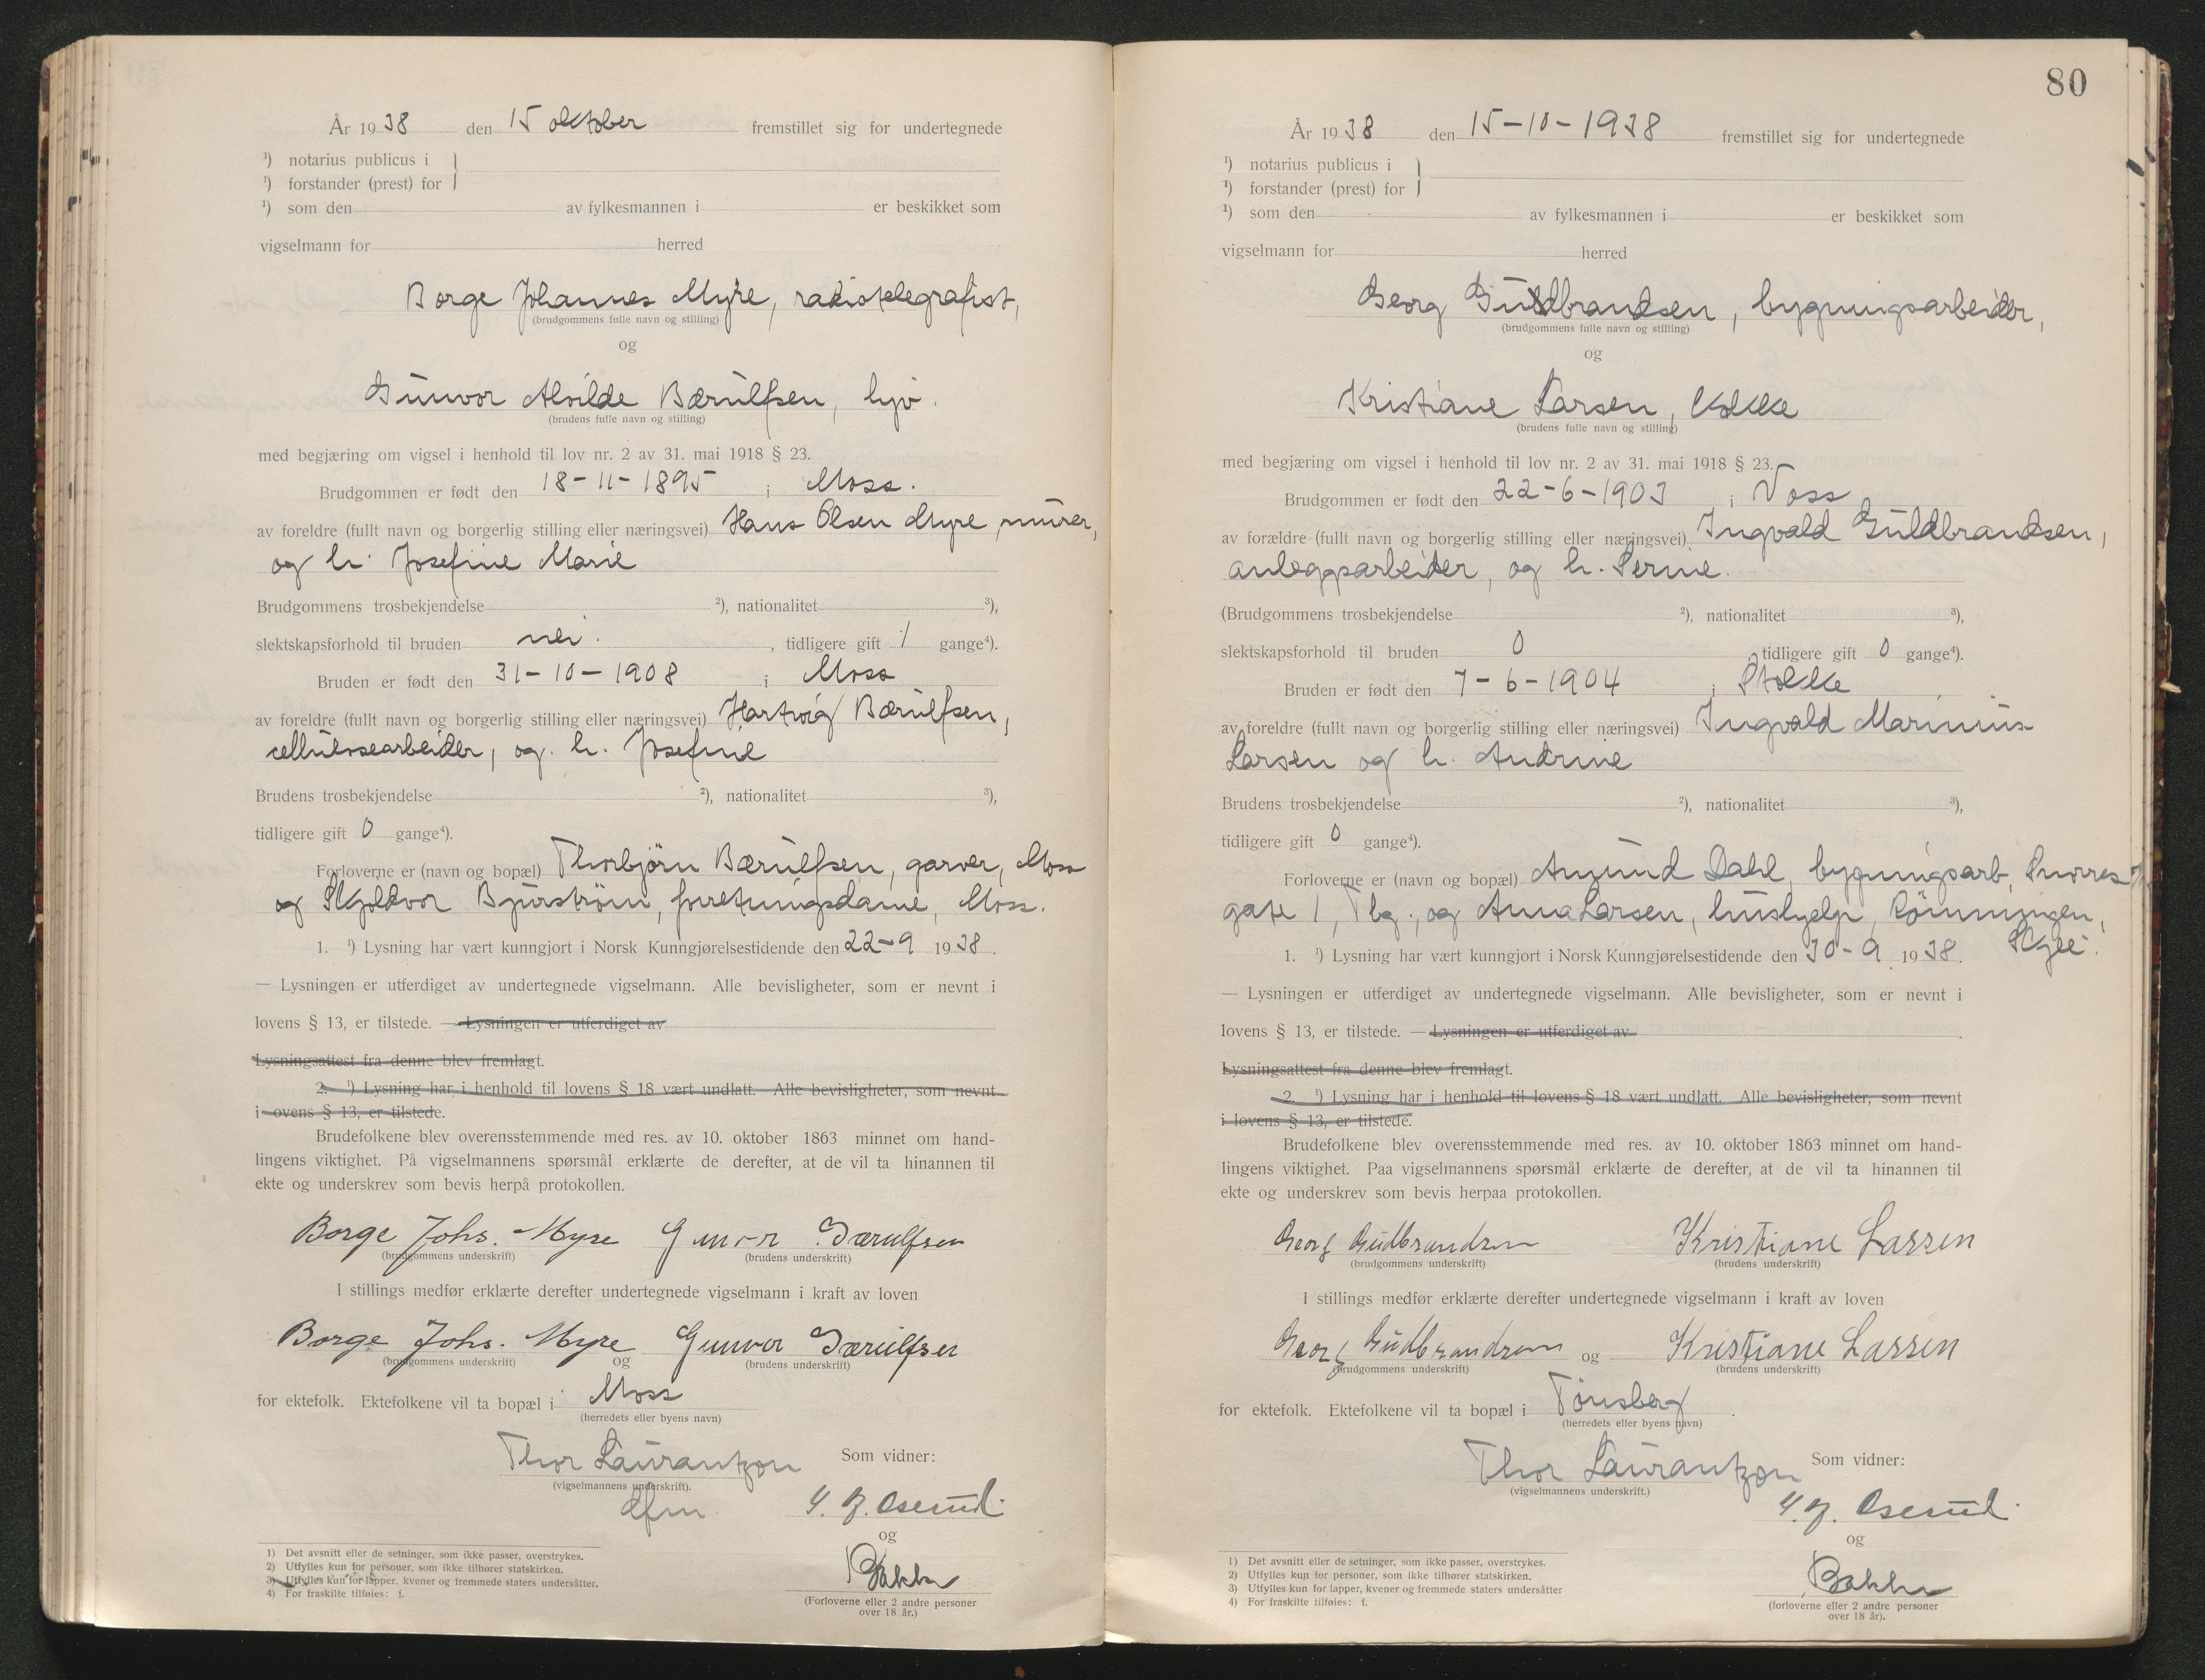 År 1938 den 15 oktober fremstillet sig for undertegnede
¹) notarius publicus i
¹) forstander (prest) for
¹) som den av fylkesmannen i er beskikket som
vigselmann for herred
Borge Johannes Myre, radiotelegrafist,
(brudgommens fulle navn og stilling)
og
Gunvor Alvilde Bærulfsen, hjv.
(brudens fulle navn og stilling)
med begjæring om vigsel i henhold til lov nr. 2 av 31. mai 1918 § 23.
Brudgommen er født den 18-11-1895 i Moss.
av foreldre (fullt navn og borgerlig stilling eller næringsvei) Hans Olsen Myre, murer,
og h. Josefine Marie
Brudgommens trosbekjendelse ²), nationalitet ³),
slektskapsforhold til bruden nei. , tidligere gift 1 gange⁴).
Bruden er født den 31-10-1908 i Moss
av foreldre (fullt navn og borgerlig stilling eller næringsvei) Hartvig Bærulfsen,
cellulosearbeider, og h. Josefine
Brudens trosbekjendelse ²), nationalitet ³),
tidligere gift 0 gange⁴).
Forloverne er (navn og bopæl) Thorbjörn Bærulfsen, garver, Moss
og Skjoldvor Bjurström, forretningsdame, Moss.
1. ¹) Lysning har vært kunngjort i Norsk Kunngjørelsestidende den 22-9 1938.
— Lysningen er utferdiget av undertegnede vigselmann. Alle bevisligheter, som er nevnt i
lovens § 13, er tilstede. — Lysningen er utferdiget av
Lysningsattest fra denne blev fremlagt.
2. ¹) Lysning har i henhold til lovens § 18 vært undlatt. Alle bevisligheter, som nevnt
i ovens § 13, er tilstede.
Brudefolkene blev overensstemmende med res. av 10. oktober 1863 minnet om hand-
lingens viktighet. På vigselmannens spørsmål erklærte de derefter, at de vil ta hinannen til
ekte og underskrev som bevis herpå protokollen.
Borge Johs. Myre Gunvor Bærulfsen
(brudgommens underskrift) (brudens underskrift)
I stillings medfør erklærte derefter undertegnede vigselmann i kraft av loven
Borge Johs. Myre og Gunvor Bærulfsen
(brudgommens underskrift) (brudens underskrift)
for ektefolk. Ektefolkene vil ta bopæl i Moss
(herredets eller byens navn)
Thor Laurantzon Som vidner:
(vigselmannens underskrift).
dfm. Oserud
og
Bakke
(Forloverne eller 2 andre personer
over 18 år.)
1) Det avsnitt eller de setninger, som ikke passer, overstrykes.
2) Utfylles kun for personer, som ikke tilhører statskirken.
3) Utfylles kun for lapper, kvener og fremmede staters undersåtter.
4) For fraskilte tilføies: f.
80
År 1938 den 15-10-1938 fremstillet sig for undertegnede
¹) notarius publicus i
¹) forstander (prest) for
¹) som den av fylkesmannen i er beskikket som
vigselmann for herred
Georg Guldbrandsen, bygningsarbeider,
(brudgommens fulle navn og stilling)
og
Kristiane Larsen, kokke
(brudens fulle navn og stilling)
med begjæring om vigsel i henhold til lov nr. 2 av 31. mai 1918 § 23.
Brudgommen er født den 22-6-1903 i Voss
av forældre (fullt navn og borgerlig stilling eller næringsvei) Ingvald Guldbrandsen,
anleggsarbeider, og h. Serine.
(Brudgommens trosbekjendelse ²), nationalitet ³),
slektskapsforhold til bruden 0 , tidligere gift 0 gange⁴).
Bruden er født den 7-6-1904 i Stokke
av foreldre (fullt navn og borgerlig stilling eller næringsvei) Ingvald Marinius
Larsen og h. Andrine
Brudens trosbekjendelse ²), nationalitet ³),
tidligere gift 0 gange⁴).
Forloverne er (navn og bopæl) Amund Dahl, bygningsarb, Snorres
gate 1, Tbg., og Anna Larsen, hushjelp, Rönningen,
1. ¹) Lysning har vært kunngjort i Norsk Kunngjørelsestidende den 30-9 1938.
— Lysningen er utferdiget av undertegnede vigselmann. Alle bevisligheter, som er nevnt i
lovens § 13, er tilstede. — Lysningen er utferdiget av
Lysningsattest fra denne blev fremlagt.
2. ¹) Lysning har i henhold til lovens § 18 vært undlatt. Alle bevisligheter, som nevnt
i lovens § 13, er tilstede.
Brudefolkene blev overensstemmende med res. av 10. oktober 1863 minnet om hand-
lingens viktighet. Paa vigselmannens spørsmål erklærte de derefter, at de vil ta hinannen til
ekte og underskrev som bevis herpaa protokollen.
Georg Gudbrandsen Kristiane Larsen
(brudgommens underskrift) (brudens underskrift)
I stillings medfør erklærte derefter undertegnede vigselmann i kraft av loven
Georg Gudbrandsen og Kristiane Larsen
(brudgommens underskrift) (brudens underskrift)
for ektefolk. Ektefolkene vil ta bopæl i Tönsberg.
(herredets eller byens navn)
Thor Laurantzon Som vidner:
(vigselmannens underskrift.)
Oserud
og
Bakke
(forloverne eller 2 andre personer
over 18 år).
1) Det avsnitt eller de setninger, som ikke passer, overstrykes.
2) Utfylles kun for personer, som ikke tilhører statskirken.
3) Utfylles kun for lapper, kvener og fremmede staters undersåtter
4) For fraskilte tilføies: f.